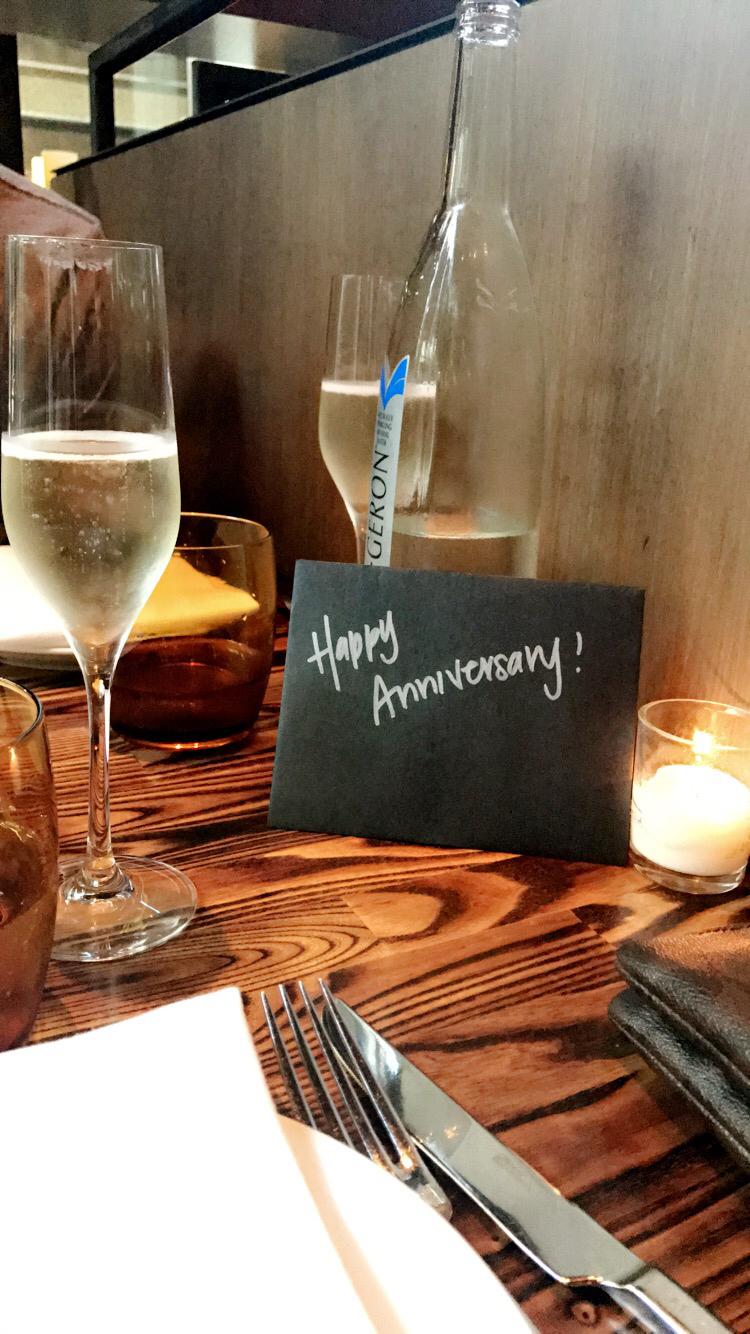 GGERON
Happy
Anniversary!